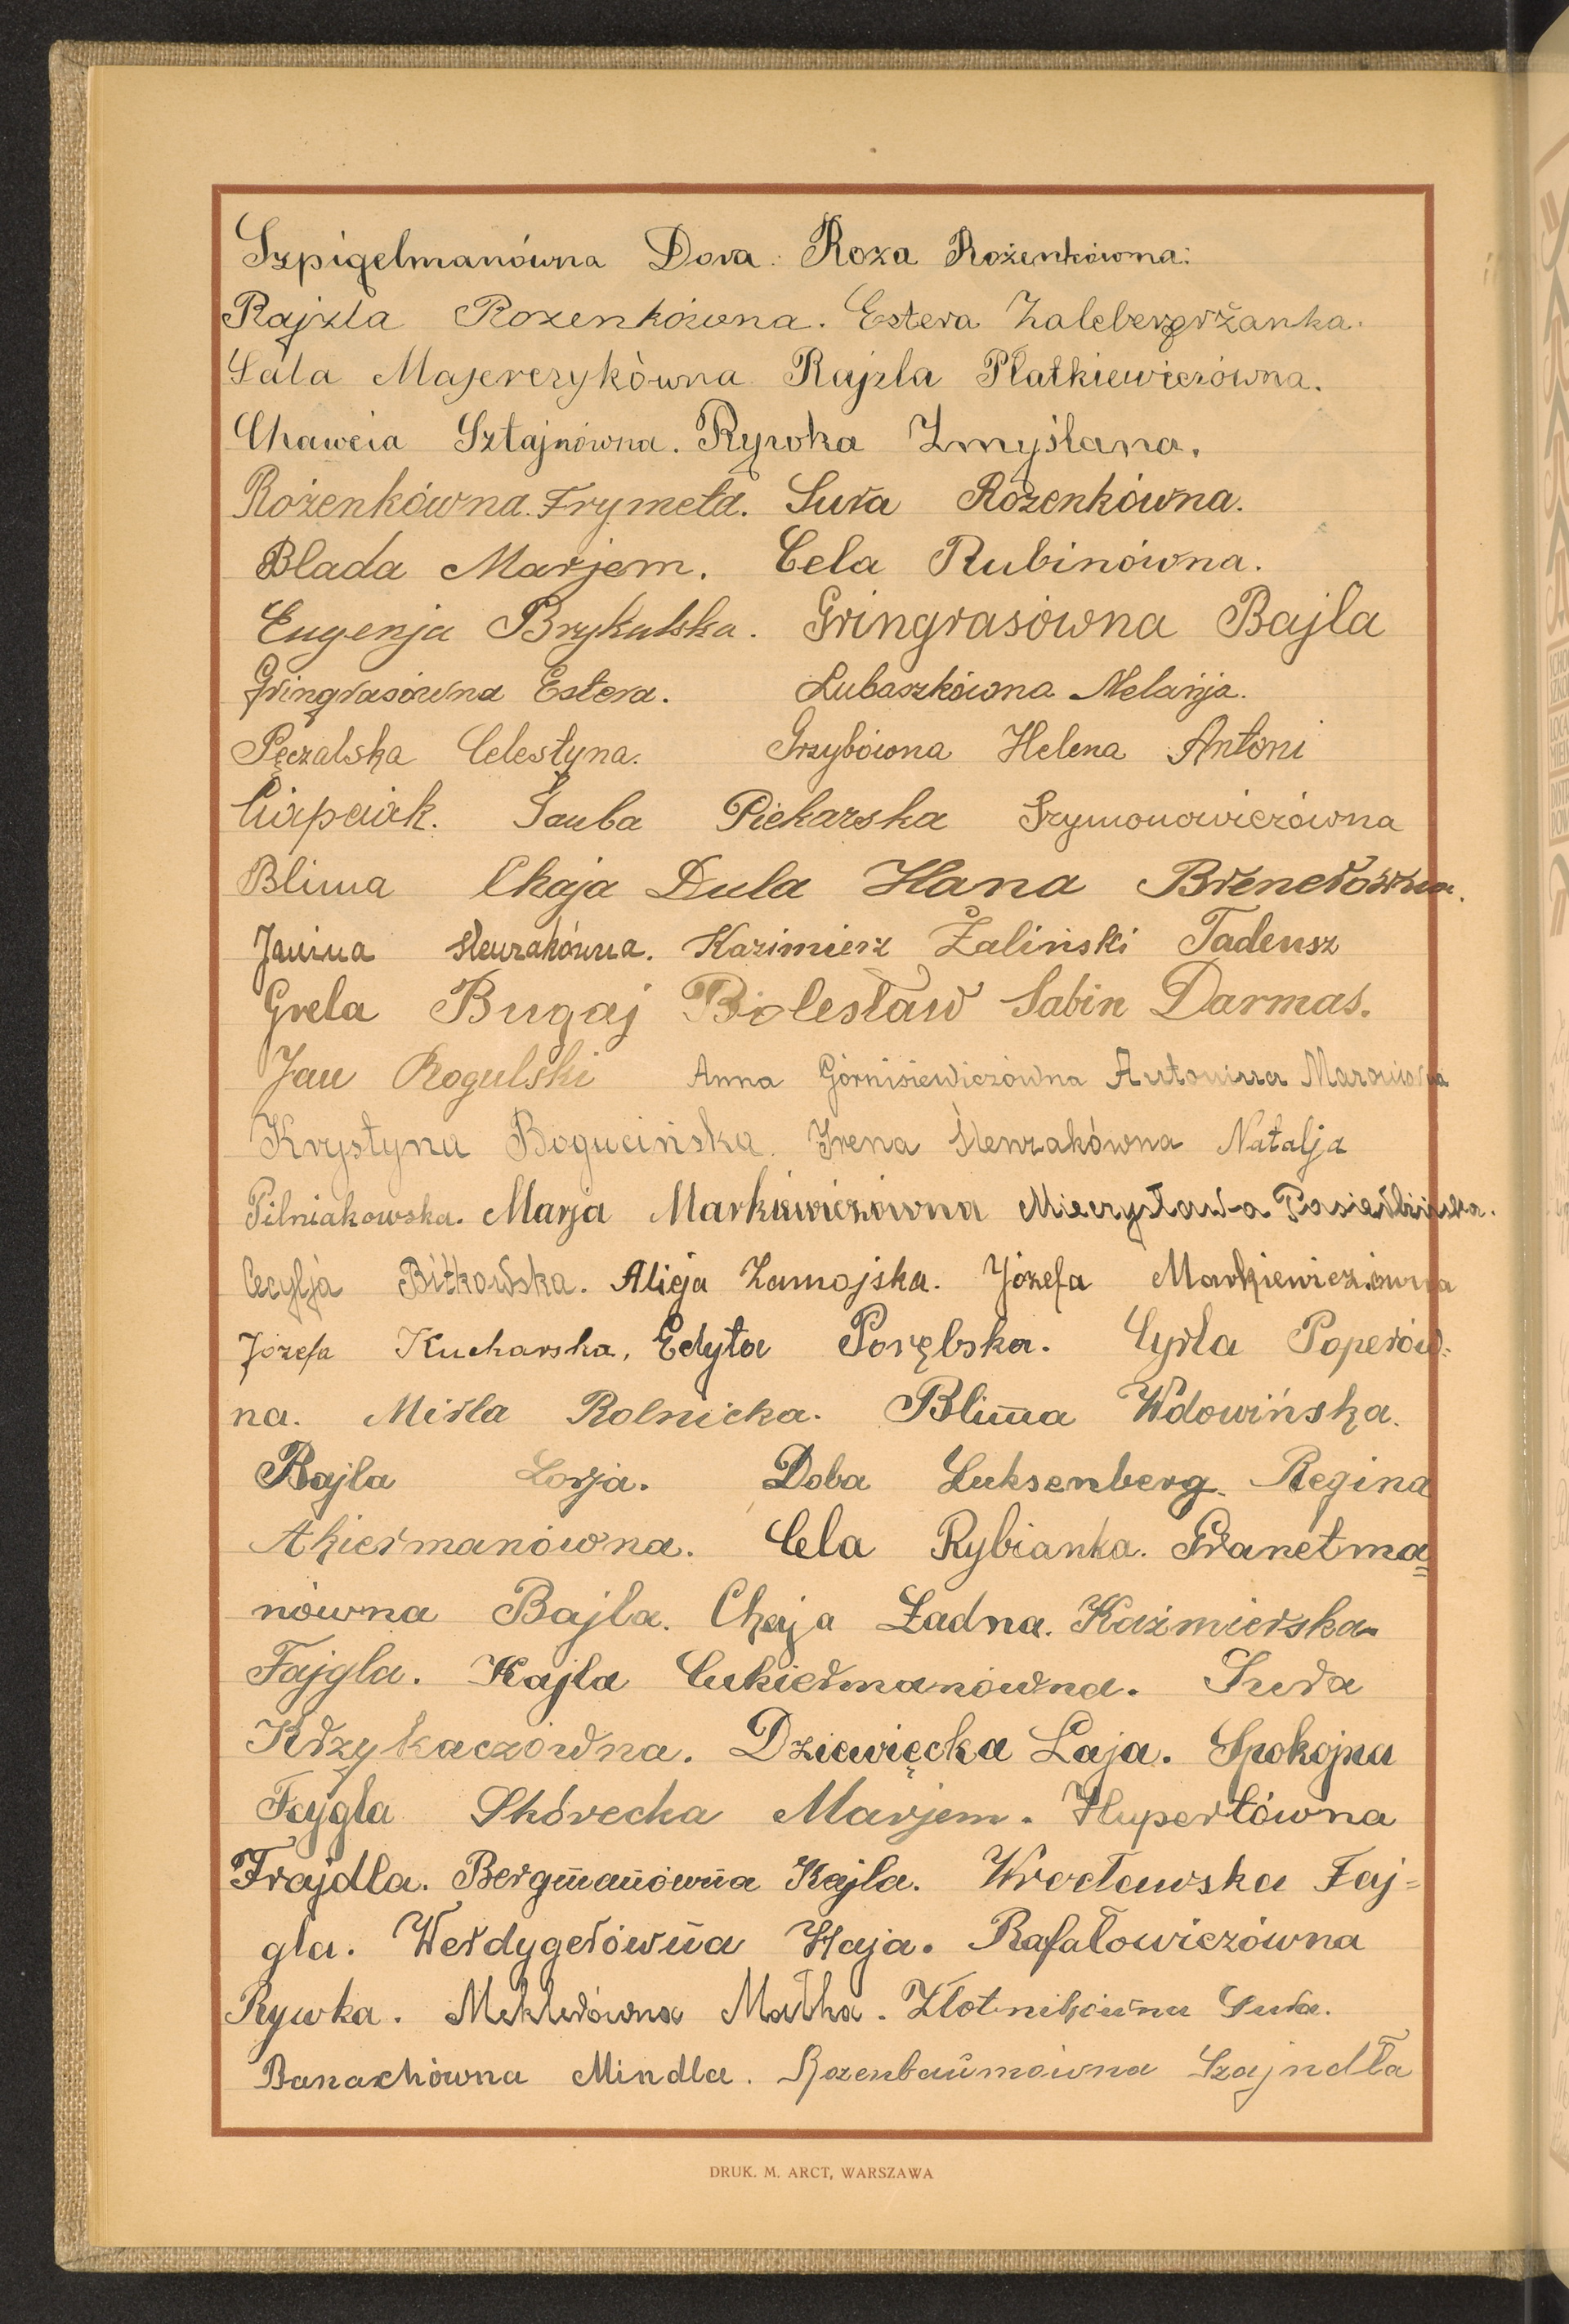 Szpigelmanówna Dora. Roza Rożenkówna.
Rajzla Rozenkówna. Estera Zalcbergrżanka.
Sala Majerczykówna Rajzla Płatkiewiczówna.
Chawcia Sztajnówna. Rywka Zmyślana.
Rożenkówna Frymeta. Sura Rożenkówna.
Blada Marjem. Cela Rubinówna.
Eugenja Brykalska. Gringrasówna Bajla
Gringrasówna Estera. Lubaszkówna Melanja.
Pęczalska Celestyna. Grzybówna Helena Antoni
Cirpciak. Tauba Piekarska Szymonowiczówna
Blima Chaja Dula Hana Brenerówna.
Janina Slenzakówna. Kazimierz Żaliński Tadeusz
Grela Bugaj Bolesław Sabin Darmas.
Jan Rogulski Anna Górnisiewiczówna Antonina
Krystyna Bogucińska. Irena Slenzakówna Natalja
Pilniakowska. Marja Markiewiczówna Mieczysława
Cecylja Bitkowska. Alicja Zamojska. Józefa Markiewiczówna
Józefa Kucharska, Edyta Porębska. Cyrla Poperów-
na. Mirla Rolnicka. Blima Wdowińska.
Bajla Lorja. Doba Luksenberg. Regina
Akiermanówna. Cela Rybianka. Granetma=
nówna Bajla. Chaja Ładna. Kaźmierska
Fajgla. Kajla Cukiermanówna. Sura
Krzykaczówna. Dziewięcka Laja. Spokojna
Fajgla Skórecka Marjem. Hupertówna
Frajdla. Bergmanówna Kajla. Wrocławska Faj=
gla. Werdygerówna Haja. Rafałowiczówna
Rywka. Meklerówna Małka. Złotnikówna Sura.
Banachówna Mindla. Rozenbaumówna Szajndla
DRUK. M. ARCT, WARSZAWA